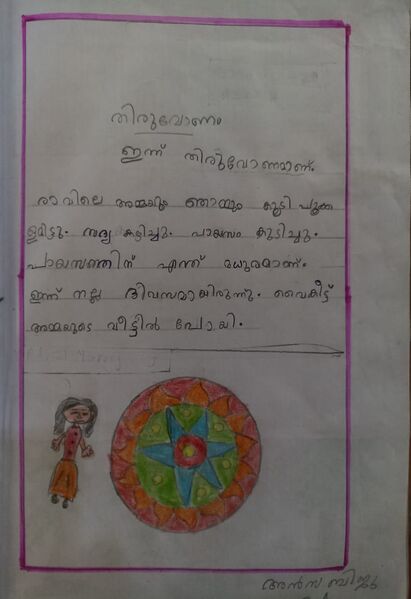 തിരുവോണം
ഇന്ന് തിരുവോണമാണ്.
രാവിലെ അമ്മയും ഞാനും കൂടി പൂക്ക
ളമിട്ടു. സദ്യ കഴിച്ചു. പായസം കുടിച്ചു.
പായസത്തിന് എന്ത് മധുരമാണ്.
ഇന്ന് നല്ല ദിവസമായിരുന്നു. വൈകീട്ട്
അമ്മയുടെ വീട്ടിൽ പോയി.
അൻസ ബിജു